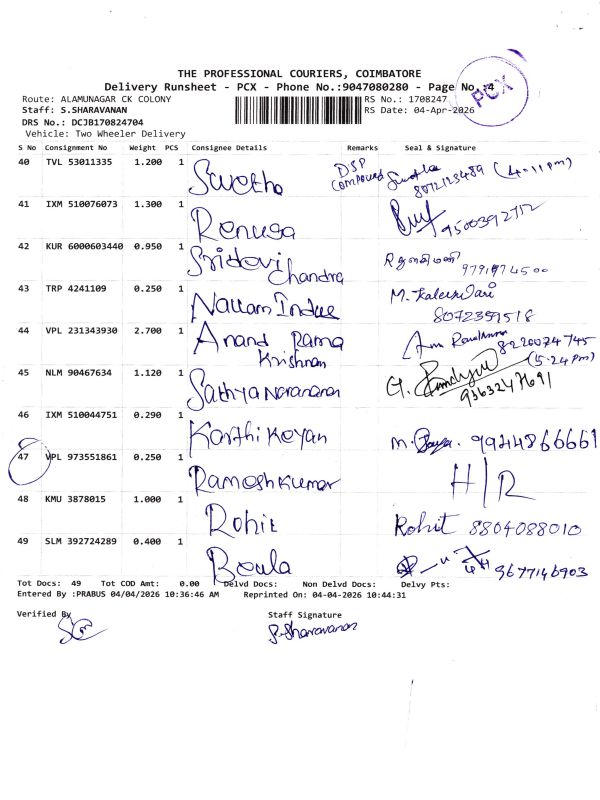 THE PROFESSIONAL COURIERS, COIMBATORE
Delivery Runsheet - PCX - Phone No.:9047080280 - Page No.:4
PCX
Route: ALAMUNAGAR CK COLONY
RS No.: 1708247
Staff: S.SHARAVANAN
RS Date: 04-Apr-2026
DRS No.: DCJB170824704
Vehicle: Two Wheeler Delivery
S No Consignment No Weight PCS Consignee Details Remarks Seal & Signature
40 TVL 53011335 1.200 1 Swetha DSP compound Swetha 8072123489 (4-11 pm)
41 IXM 510076073 1.300 1 Renuga 9500392712
42 KUR 6000603440 0.950 1 Sridevi Chandra 9791974500
43 TRP 4241109 0.250 1 8072359518
44 VPL 231343930 2.700 1 Anand Rama Krishnan 8220074745
45 NLM 90467634 1.120 1 Sathya Narayanan (5-24 pm) G. 9363247691
46 IXM 510044751 0.290 1 Karthikeyan 9944866661
47 VPL 973551861 0.250 1 Ramesh Kumar H/R
48 KMU 3878015 1.000 1 Rohit Rohit 8804088010
49 SLM 392724289 0.400 1 Boula 9677146903
Tot Docs: 49 Tot COD Amt: 0.00 Delvd Docs: Non Delvd Docs: Delvy Pts:
Entered By :PRABUS 04/04/2026 10:36:46 AM Reprinted On: 04-04-2026 10:44:31
Verified By
Staff Signature
S.Sharavanan